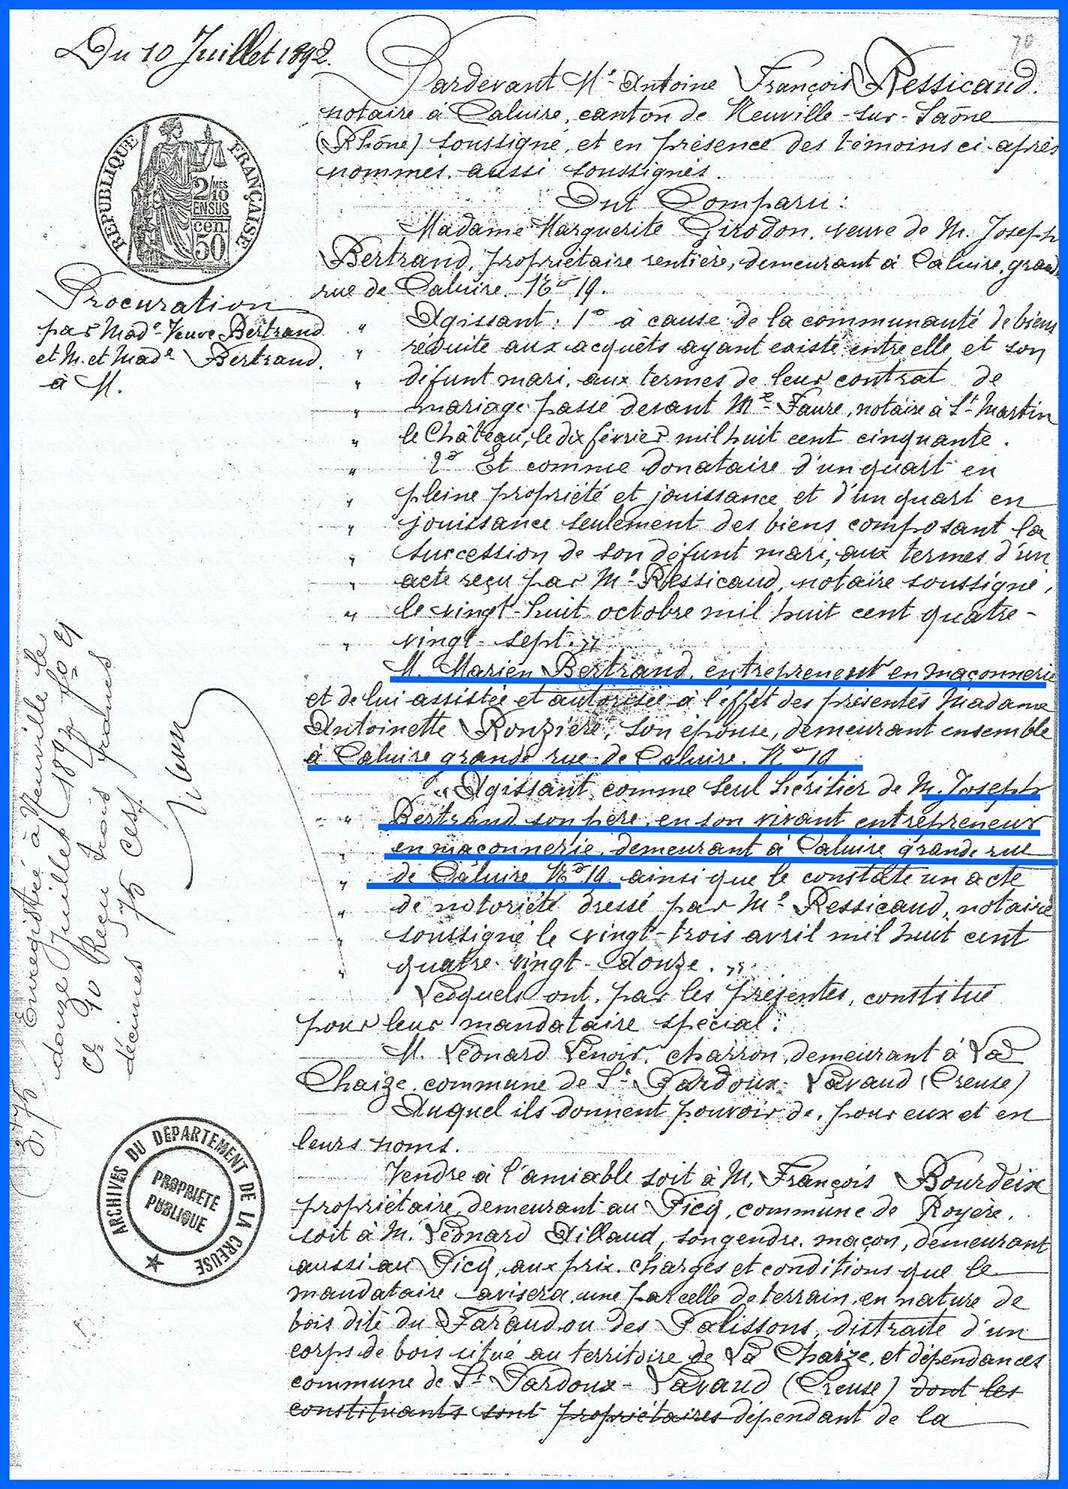 Du 10 Juillet 1892.
70
Pardevant Me Antoine François Ressicaud.
notaire à Caluire, canton de Neuville-sur-Saône
(Rhône) soussigné, et en présence des témoins ci-après
nommés, aussi soussignés.
Ont Comparu:
Madame Marguerite Girodon, veuve de M. Joseph
Bertrand, propriétaire rentière, demeurant à Caluire, grande
rue de Caluire No 19.
Agissant: 1o à cause de la communauté de biens
réduite aux acquêts ayant existé entre elle et son
défunt mari, aux termes de leur contrat de
mariage passé devant Me Faure, notaire à St Martin
le Château, le dix février mil huit cent cinquante.
2o Et comme donataire d'un quart en
pleine propriété et jouissance et d'un quart en
jouissance seulement des biens composant la
succession de son défunt mari, aux termes d'un
acte reçu par Me Ressicaud, notaire soussigné,
le vingt-huit octobre mil huit cent quatre-
vingt-sept. "
M. Marien Bertrand, entrepreneur en maçonnerie
et de lui assistée et autorisée à l'effet des présentes Madame
Antoinette Ronzière, son épouse, demeurant ensemble
à Caluire grande rue de Caluire. No 19
" Agissant comme seul héritier de M. Joseph
Bertrand son père, en son vivant entrepreneur
en maçonnerie, demeurant à Caluire grande rue
de Caluire No 19, ainsi que le constate un acte
de notoriété dressé par Me Ressicaud, notaire
soussigné le vingt-trois avril mil huit cent
quatre-vingt-douze. "
Lesquels ont, par les présentes, constitué
pour leur mandataire spécial:
M. Léonard Lenoir, charron, demeurant à La
Chaize, commune de St Pardoux-Lavaud (Creuse)
Auquel ils donnent pouvoir de, pour eux et en
leurs noms.
Vendre à l'amiable soit à M. François Bourdeix
propriétaire, demeurant au Picq, commune de Royère,
soit à M. Léonard Aillaud, son gendre, maçon, demeurant
aussi au Picq, aux prix, charges et conditions que le
mandataire avisera, une parcelle de terrain, en nature de
bois dite du Faraud ou des Palissons, distraite d'un
corps de bois situé au territoire de La Chaize, et dépendances
commune de St Pardoux-Lavaud (Creuse) dont les
constituants sont propriétaires dépendant de la
RÉPUBLIQUE FRANÇAISE
2/10
MES
EN SUS
cen.
50
Procuration
par Made Veuve Bertrand
et M. et Made Bertrand.
à M.
Enregistré à Neuville le
douze Juillet 1892 fo 9
Co 90 Reçu trois francs
décimes 75 ces
ARCHIVES DU DÉPARTEMENT DE LA CREUSE
PROPRIÉTÉ
PUBLIQUE